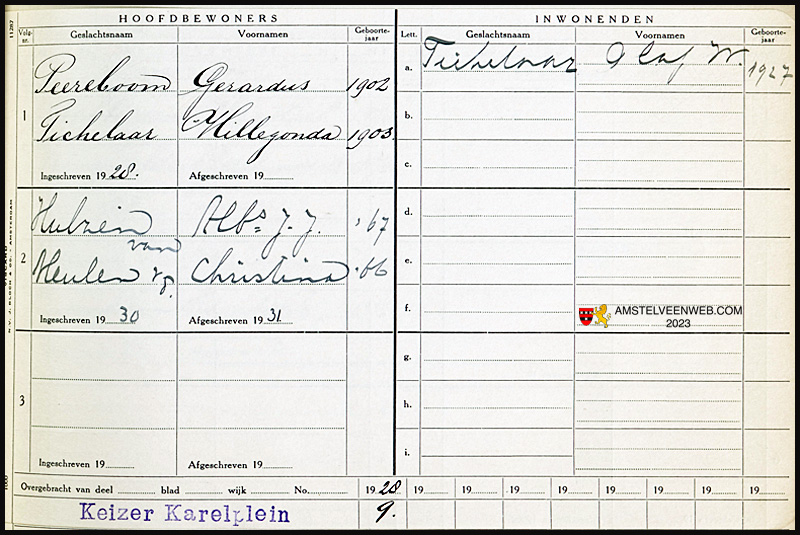 HOOFDBEWONERS
Volg-nr. Geslachtsnaam Voornamen Geboorte-jaar
1 Peereboom Gerardus 1902
Tichelaar Hillegonda 1903
Ingeschreven 1928. Afgeschreven 19
Albs J. J. '67
van
2 Christina '66
Ingeschreven 1930 Afgeschreven 1931
3
Ingeschreven 19 Afgeschreven 19
INWONENDEN
Lett. Geslachtsnaam Voornamen Geboorte-jaar
a. Tichelaar Olaf W. 1927
b.
c.
d.
e.
f.
AMSTELVEENWEB.COM
2023
g.
h.
i.
Overgebracht van deel blad wijk No. 1928 19 19 19 19 19 19 19 19
Keizer Karelplein 9.